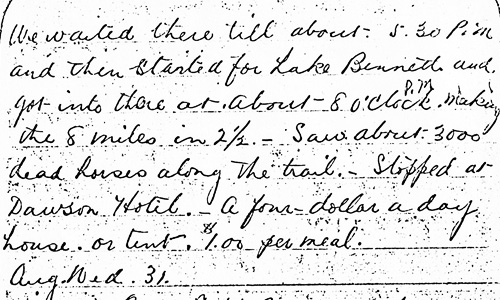 We waited there till about 5.30 P.m
and then started for Lake Bennett and
got into there at about 8 o'clock P.M. making
the 8 miles in 2½. – Saw about 3000
dead horses along the trail. – Stopped at
Dawson Hotel. – A four dollar a day
house. or tent. $1.00 per meal.
Aug. Wed. 31.